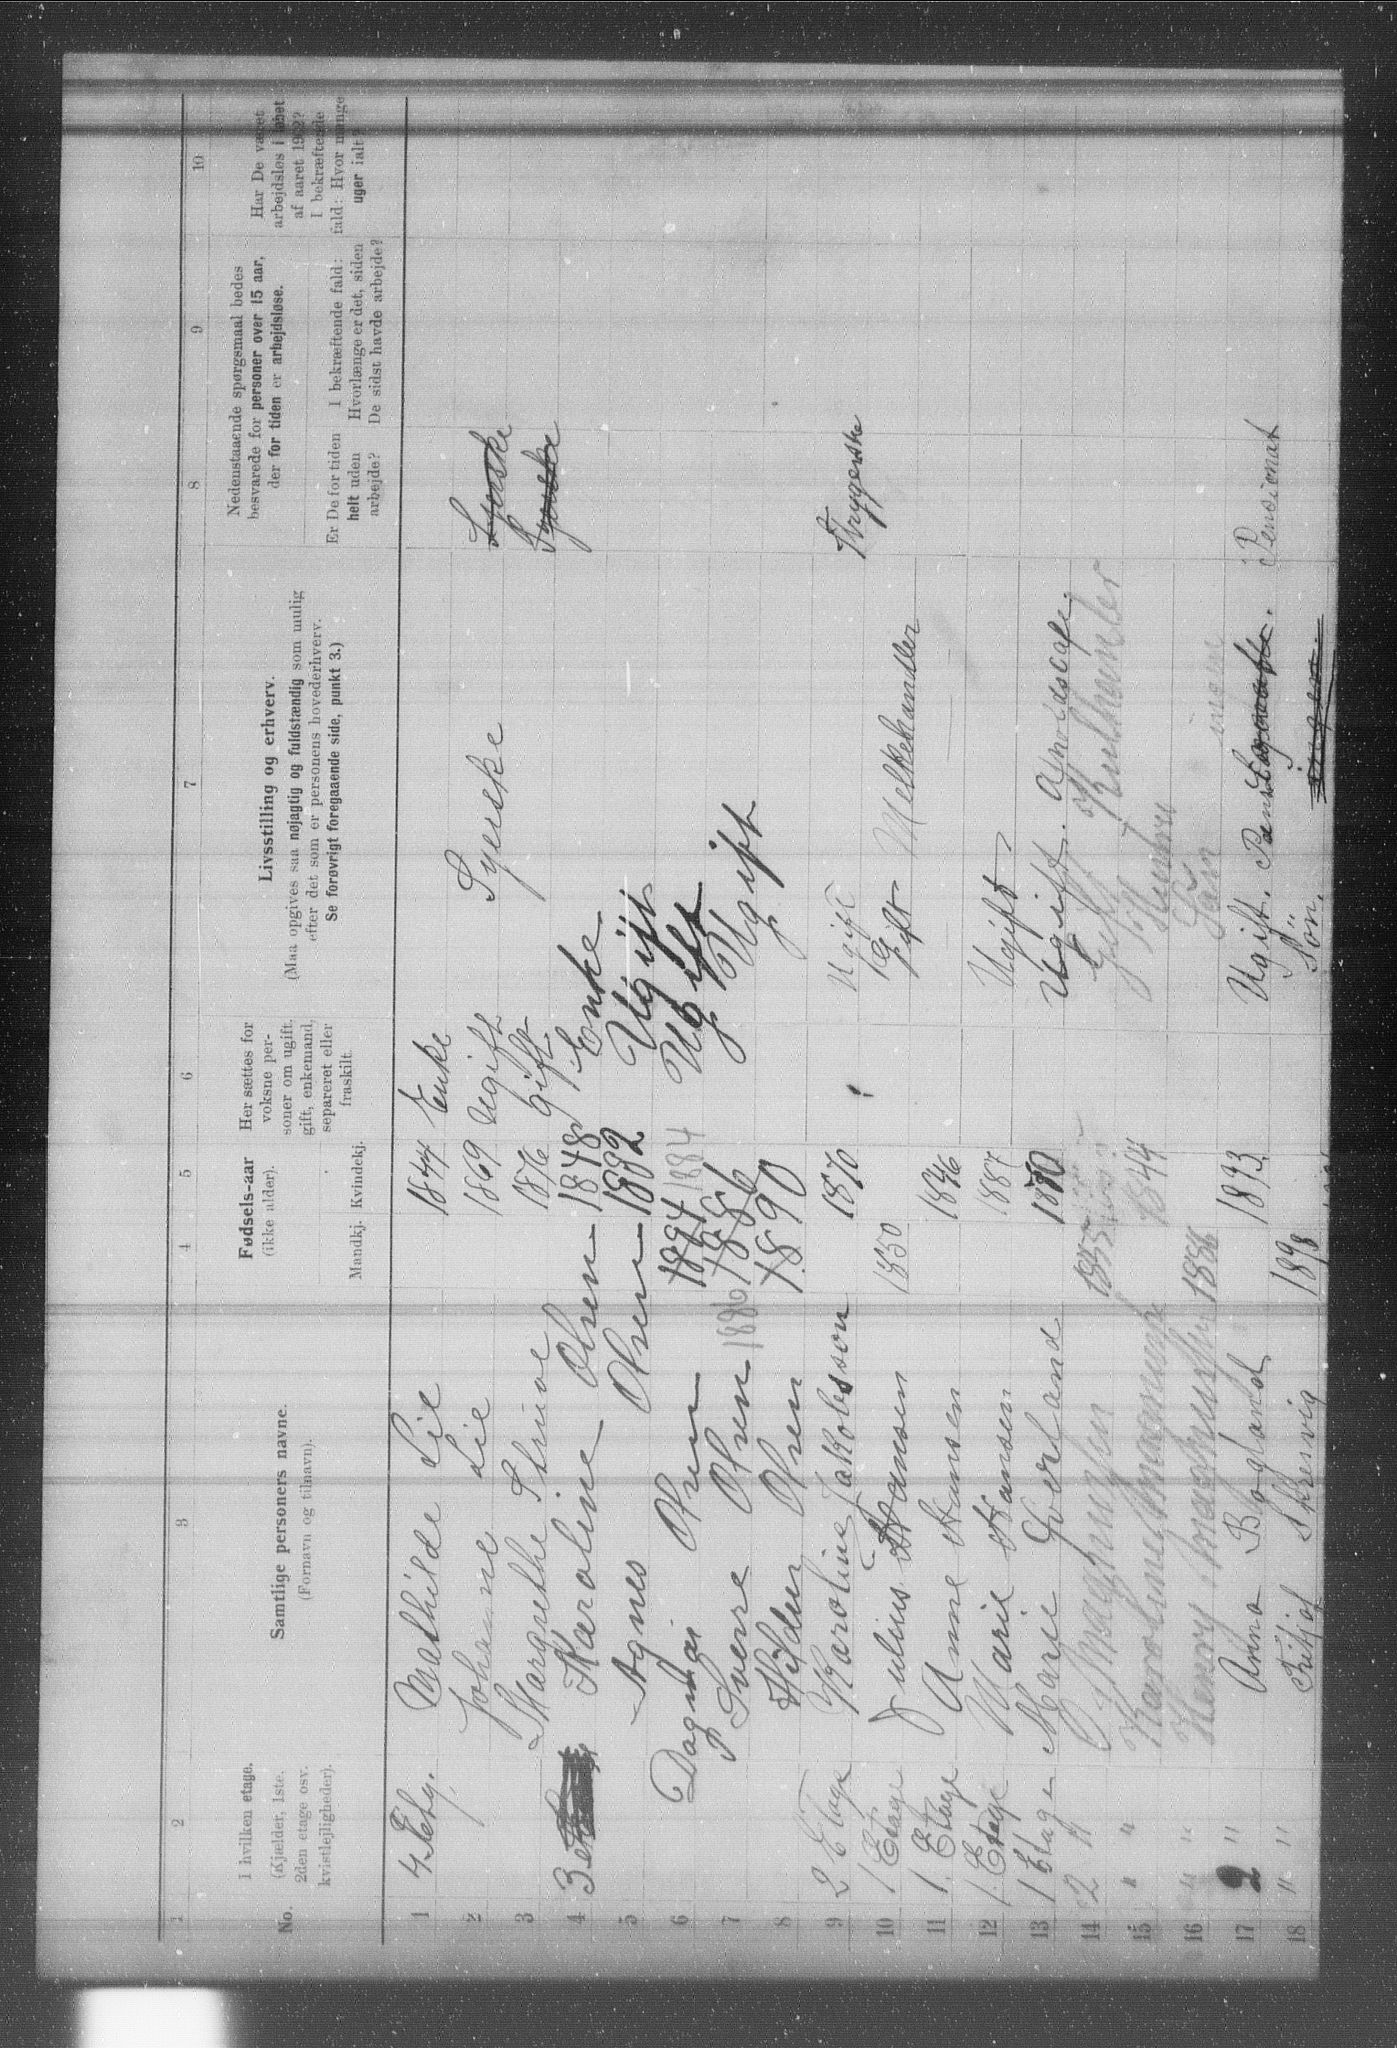 1 2 3 4 5 6 7 8 9 10
No.
I hvilken etage.
(Kjælder, 1ste.
2den etage osv.
kvistlejligheder).
Samtlige personers navne.
(Fornavn og tilnavn).
Fødsels-aar
(ikke alder).
Mandkj. Kvindekj.
Her sættes for
voksne per-
soner om ugift,
gift, enkemand,
separeret eller
fraskilt.
Livsstilling og erhverv.
(Maa opgives saa nøjagtig og fuldstændig som mulig
efter det som er personens hovederhverv.
Se forøvrigt foregaaende side, punkt 3.)
Nedenstaaende spørgsmaal bedes
besvarede for personer over 15 aar,
der for tiden er arbejdsløse.
Er De for tiden
helt uden
arbejde?
I bekræftende fald:
Hvorlænge er det, siden
De sidst havde arbejde?
Har De været
arbejdsløs i løbet
af aaret 1902?
I bekræftende
fald: Hvor mange
uger ialt?
1 4 Etg. Mathilde Lie 1844 Enke
2 Johanne Lie 1869 Ugift Syerske Syerske
3 Margrethe Struve 1876 Gift Syerske
4 3 Et Karoline Olsen 1848 Enke
5 Agnes Olsen 1882 Ugift
6 Dagmar Olsen 1884 1884 Ugift
7 Sverre Olsen 1886 1886 Ugift
8 Hildur Olsen 1890 Ugift
9 2 Etage Karoline Jakobsson 1870 Ugift Strygerske
10 1 Etage Julius Hansen 1850 Gift Melkehandler
11 1. Etage Anne Hansen 1846
12 1. Etage Marie Hansen 1887 Ugift
13 1 Etage Marie Sørland 1870 Ugift. Arnoldscafe.
14 2 " Magnussen 1855 Gift Kulhandler
15 " " Karoline Magnussen 1844 Hustru
16 " Henry Magnussen 1886 Søn ingen
17 2 " Anna Bogland 1893 Ugift. Pensionat
18 " " Fritjof Skresvig 1898 Søn. ingen.